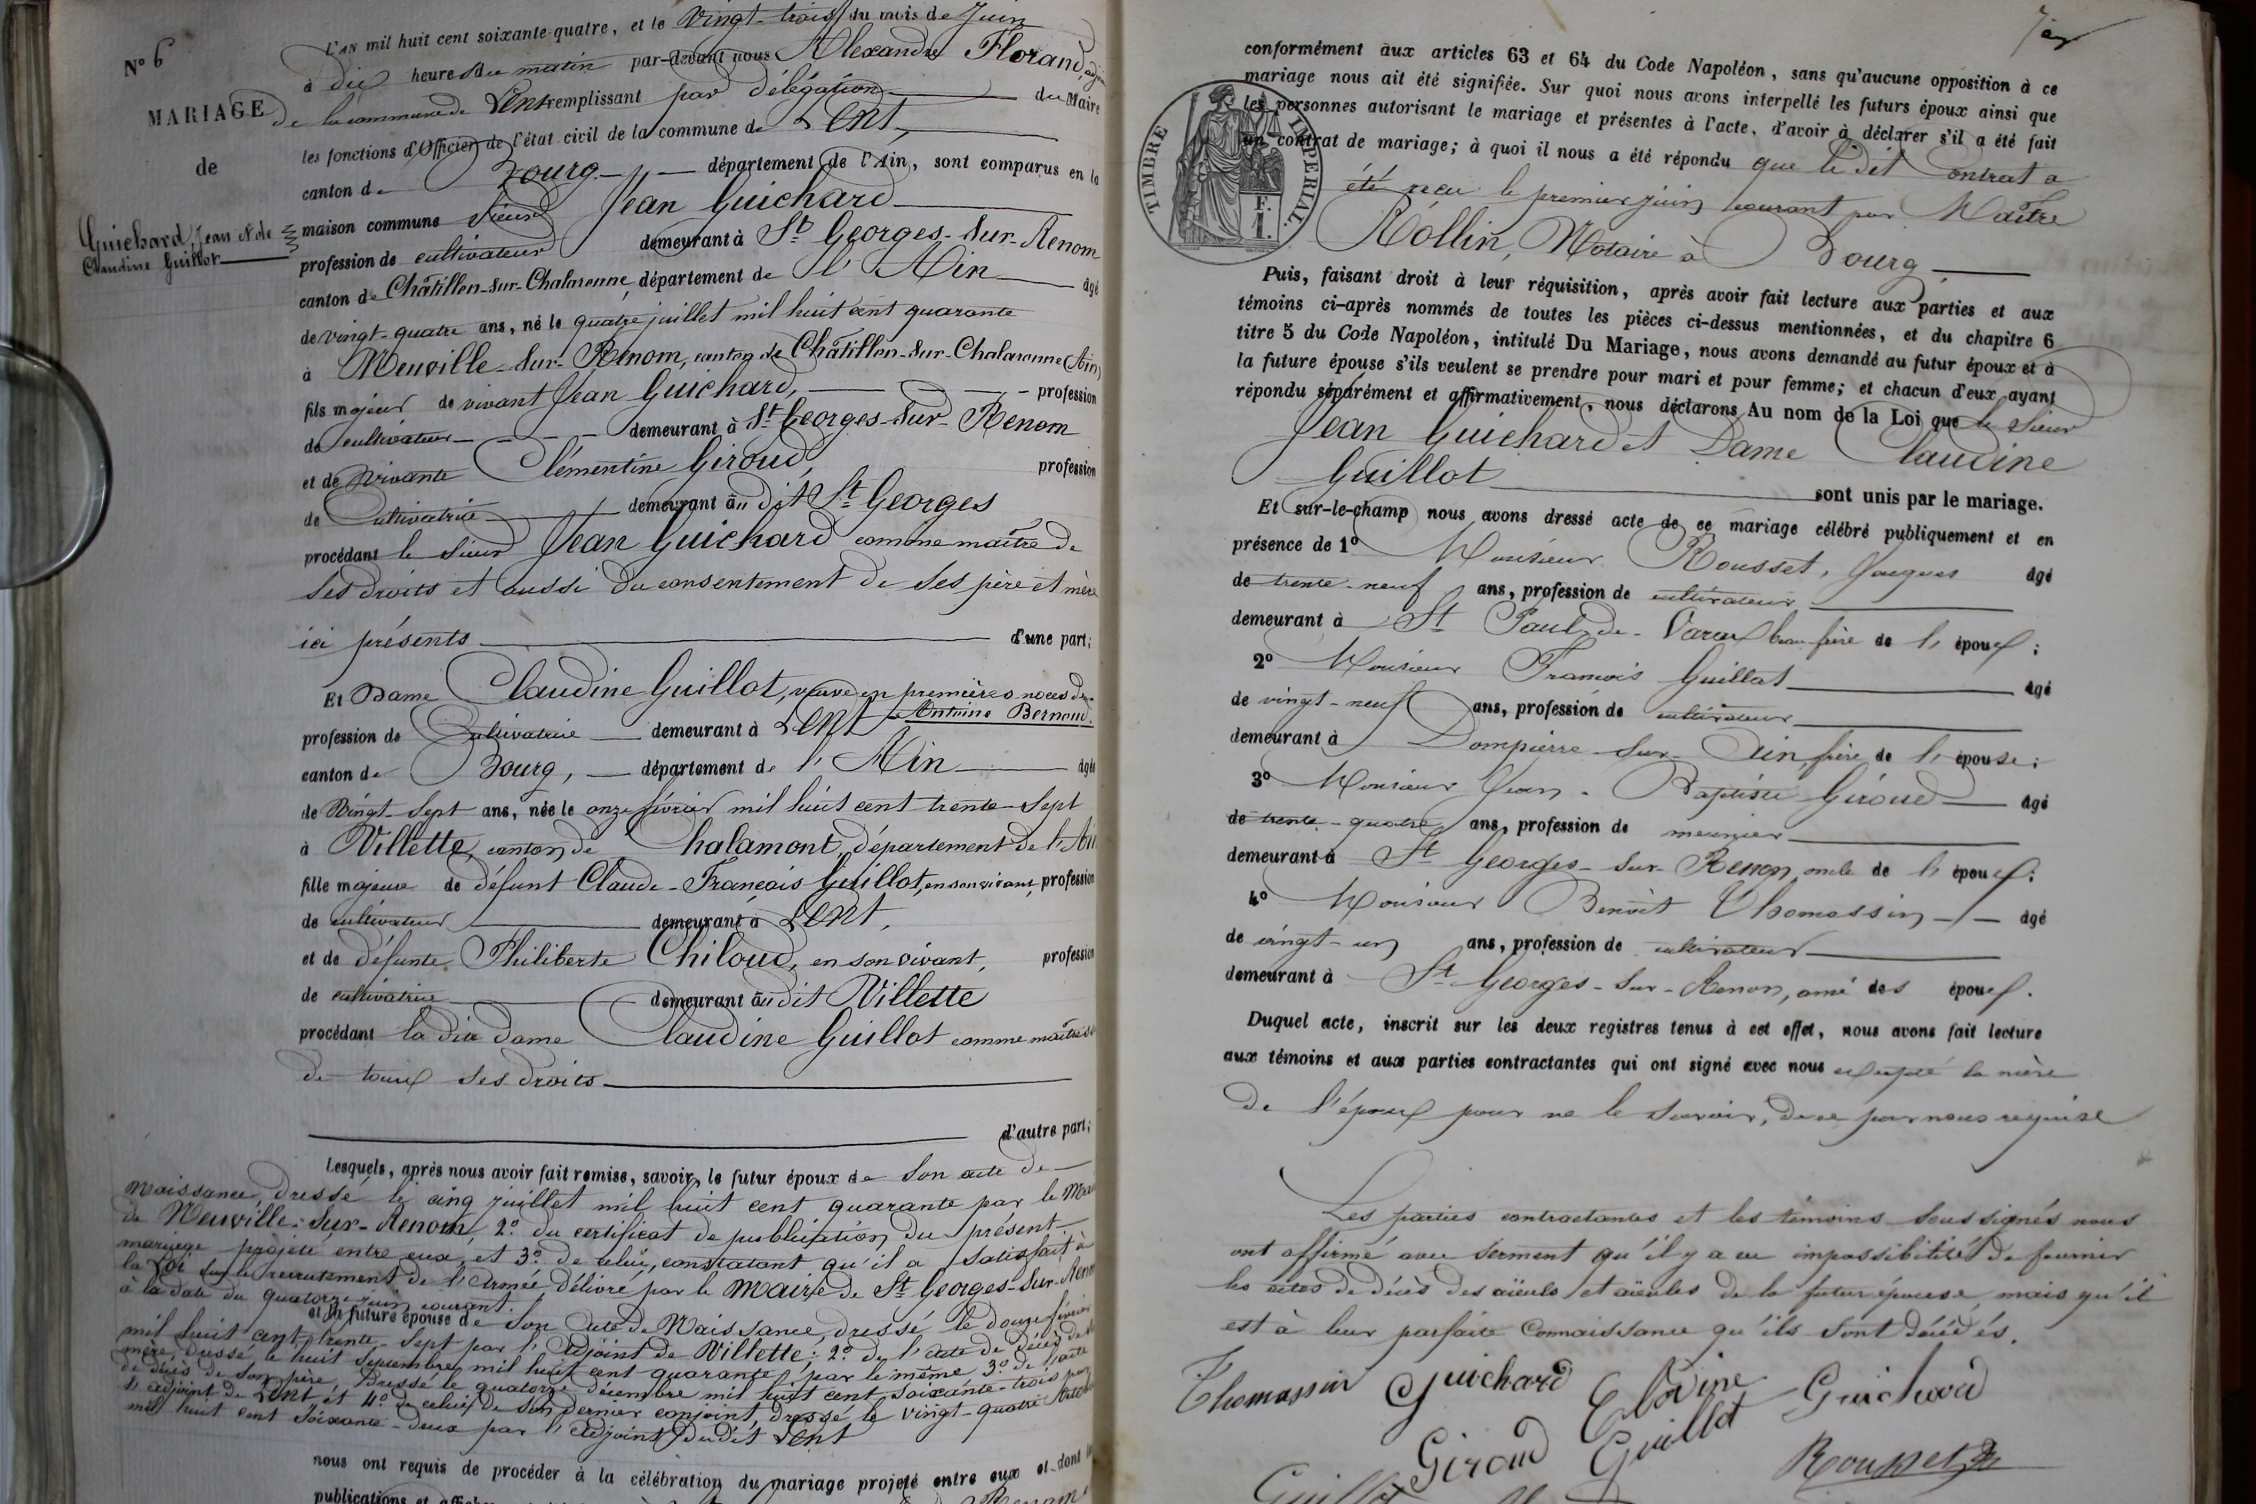 N° 6
MARIAGE
de
Guichard, Jean et de
Claudine Guillot
L'AN mil huit cent soixante-quatre, et le Vingt-trois du mois de Juin
à dix heures du matin par-devant nous Alexandre Florand, adjoint
de la commune de Lent remplissant par délégation du Maire
les fonctions d'Officier de l'état civil de la commune de Lent,
canton de Bourg département de l'Ain, sont comparus en la
maison commune Sieur Jean Guichard
profession de cultivateur demeurant à St Georges-sur-Renom
canton de Châtillon-sur-Chalaronne, département de l'Ain âgé
de vingt-quatre ans, né le quatre juillet mil huit cent quarante
à Neuville-sur-Renom, canton de Châtillon-sur-Chalaronne (Ain)
fils majeur de vivant Jean Guichard, profession
de cultivateur demeurant à St Georges-sur-Renom
et de vivante Clémentine Giroud, profession
de Cultivatrice demeurant au dit St Georges
procédant le sieur Jean Guichard comme maître de
ses droits et aussi du consentement de ses père et mère
ici présents d'une part;
Et Dame Claudine Guillot, veuve en premières noces de
Antoine Bernoud.
profession de Cultivatrice demeurant à Lent
canton de Bourg, département de l'Ain âgée
de Vingt-sept ans, née le onze février mil huit cent trente-sept
à Villette, canton de Chalamont, département de l'Ain
fille majeure de défunt Claude-François Guillot, en son vivant, profession
de cultivateur demeurant à Lent,
et de défunte Philiberte Chiloud, en son vivant, profession
de cultivatrice demeurant au dit Villette
procédant la dite dame Claudine Guillot comme maîtresse
de tous ses droits
d'autre part;
Lesquels, après nous avoir fait remise, savoir, le futur époux de son acte de
Naissance, dressé le cinq juillet mil huit cent quarante par le Maire
de Neuville-sur-Renom, 2° du certificat de publication du présent
mariage projeté entre eux, et 3° de celui, constatant qu'il a satisfait à
la Loi sur le recrutement de l'Armée, délivré par le Maire de St Georges-sur-Renom
à la date du quatorze juin courant.
et la future épouse de son acte de Naissance, dressé le douze février
mil huit cent trente-sept par l'Adjoint de Villette; 2° de l'acte de décès de sa
mère, dressé le huit Septembre mil huit cent quarante, par le même 3° de l'acte
de décès de son père, dressé le quatorze décembre mil huit cent soixante-trois par
l'adjoint de Lent et 4° de celui de son dernier conjoint, dressé le vingt-quatre
mil huit cent soixante-deux par l'Adjoint du dit Lent
nous ont requis de procéder à la célébration du mariage projeté entre eux et dont
publications et
conformément aux articles 63 et 64 du Code Napoléon, sans qu'aucune opposition à ce
mariage nous ait été signifiée. Sur quoi nous avons interpellé les futurs époux ainsi que
les personnes autorisant le mariage et présentes à l'acte, d'avoir à déclarer s'il a été fait
un contrat de mariage; à quoi il nous a été répondu que le dit Contrat a
été reçu le premier juin courant par Maître
Rollin, Notaire à Bourg
TIMBRE IMPERIAL.
Puis, faisant droit à leur réquisition, après avoir fait lecture aux parties et aux
témoins ci-après nommés de toutes les pièces ci-dessus mentionnées, et du chapitre 6
titre 5 du Code Napoléon, intitulé Du Mariage, nous avons demandé au futur époux et à
la future épouse s'ils veulent se prendre pour mari et pour femme; et chacun d'eux ayant
répondu séparément et affirmativement, nous déclarons Au nom de la Loi que le Sieur
Jean Guichard et Dame Claudine
Guillot sont unis par le mariage.
Et sur-le-champ nous avons dressé acte de ce mariage célébré publiquement et en
présence de 1° Monsieur Rousset, Jacques âgé
de trente-neuf ans, profession de cultivateur
demeurant à St Paul-de-Varax beau-frère de l'époux;
2° Monsieur François Guillot âgé
de vingt-neuf ans, profession de cultivateur
demeurant à Dompierre-sur-Ain frère de l'épouse;
3° Monsieur Jean-Baptiste Giroud âgé
de trente-quatre ans, profession de meunier
demeurant à St Georges-sur-Renon, oncle de l'époux;
4° Monsieur Benoît Thomassin âgé
de vingt-un ans, profession de cultivateur
demeurant à St Georges-sur-Renon, ami des époux.
Duquel acte, inscrit sur les deux registres tenus à cet effet, nous avons fait lecture
aux témoins et aux parties contractantes qui ont signé avec nous excepté la mère
de l'époux pour ne le savoir, de ce par nous requise
Les parties contractantes et les témoins soussignés nous
ont affirmé avec serment qu'il y a eu impossibilité de fournir
les actes de décès des aïeuls et aïeules de la future épouse, mais qu'il
est à leur parfaite connaissance qu'ils sont décédés.
Thomassin Guichard Clodine Guichard
Giroud Guillot Rousset
Guillot